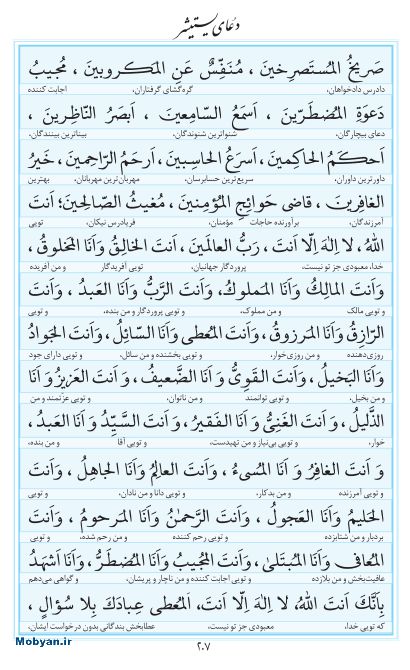 دعای یستشیر
صَریخُ المُستَصرِخینَ ، مُنَفِّسٌ عَنِ المَکروبینَ ، مُجیبُ
دادرس دادخواهان، گره‌گشای گرفتاران، اجابت کننده
دَعوَةِ المُضطَرّینَ ، اَسمَعُ السّامِعینَ ، اَبصَرُ النّاظِرینَ ،
دعای بیچارگان، شنواترین شنوندگان، بیناترین بینندگان،
اَحکَمُ الحاکِمینَ ، اَسرَعُ الحاسِبینَ ، اَرحَمُ الرّاحِمینَ ، خَیرُ
داورترین داوران، سریع‌ترین حسابرسان، مهربان‌ترین مهربانان، بهترین
الغافِرینَ ، قاضی حَوائِجِ المُؤمِنینَ ، مُغیثُ الصّالِحینَ؛ اَنتَ
آمرزندگان، برآورنده حاجات مؤمنان، فریادرس نیکان، تویی
اللهُ ، لا اِلٰهَ اِلّا اَنتَ ، رَبُّ العالَمینَ ، اَنتَ الخالِقُ وَاَنَا المَخلوقُ ،
خدا، معبودی جز تو نیست، پروردگار جهانیان، تویی آفریدگار و من آفریده
وَاَنتَ المالِکُ وَاَنَا المَملوکُ، وَاَنتَ الرَّبُّ وَاَنَا العَبدُ ، وَاَنتَ
و تویی مالک و من مملوک، و تویی پروردگار و من بنده، و تویی
الرّازِقُ وَاَنَا المَرزوقُ، وَاَنتَ المُعطی وَاَنَا السّائِلُ، وَاَنتَ الجَوادُ
روزی‌دهنده و من روزی‌خوار، و تویی بخشنده و من سائل، و تویی دارای جود
وَاَنَا البَخیلُ ، وَاَنتَ القَوِیُّ وَاَنَا الضَّعیفُ، وَاَنتَ العَزیزُ وَاَنَا
و من بخیل، و تویی توانمند و من ناتوان، و تویی عزّتمند و من
الذَّلیلُ، وَاَنتَ الغَنِیُّ وَاَنَا الفَقیرُ ، وَاَنتَ السَّیِّدُ وَاَنَا العَبدُ،
خوار، و تویی بی‌نیاز و من تهیدست، و تویی آقا و من بنده،
وَ اَنتَ الغافِرُ وَ اَنَا المُسیءُ ، وَاَنتَ العالِمُ وَاَنَا الجاهِلُ ، وَاَنتَ
و تویی آمرزنده و من بدکار، و تویی دانا و من نادان، و تویی
الحَلیمُ وَاَنَا العَجولُ ، وَاَنتَ الرَّحمٰنُ وَاَنَا المَرحومُ ، وَاَنتَ
بردبار و من شتابزده و تویی رحم کننده و من رحم شده، و تویی
المُعافی وَاَنَا المُبتَلیٰ، وَاَنتَ المُجیبُ وَاَنَا المُضطَرُّ، وَاَنَا اَشهَدُ
عافیت‌بخش و من بلازده و تویی اجابت کننده و من ناچار و پریشان، و گواهی می‌دهم
بِاَنَّکَ اَنتَ اللهُ، لا اِلٰهَ اِلّا اَنتَ، اَلمُعطی عِبادَکَ بِلا سُؤالٍ ،
که تویی خدا، معبودی جز تو نیست، عطابخش بندگانی بدون درخواست ایشان،
۲۰۷
Mobyan.ir